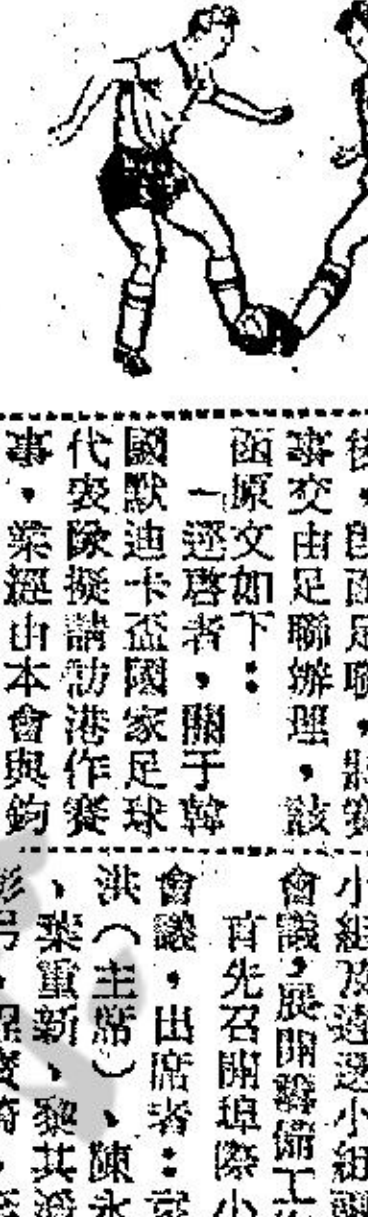 後，即函足聯，將賽
事交由足聯辦理，該
函原文如下：
「逕啓者，關于韓
國默迪卡盃國家足球
代表隊擬請訪港作賽
事，業經由本會與鈞
小組及遴選小組
會議，展開籌備工
首先召開埠際小
會議，出席者：
洪（主席）、陳永
、葉重新、黎其